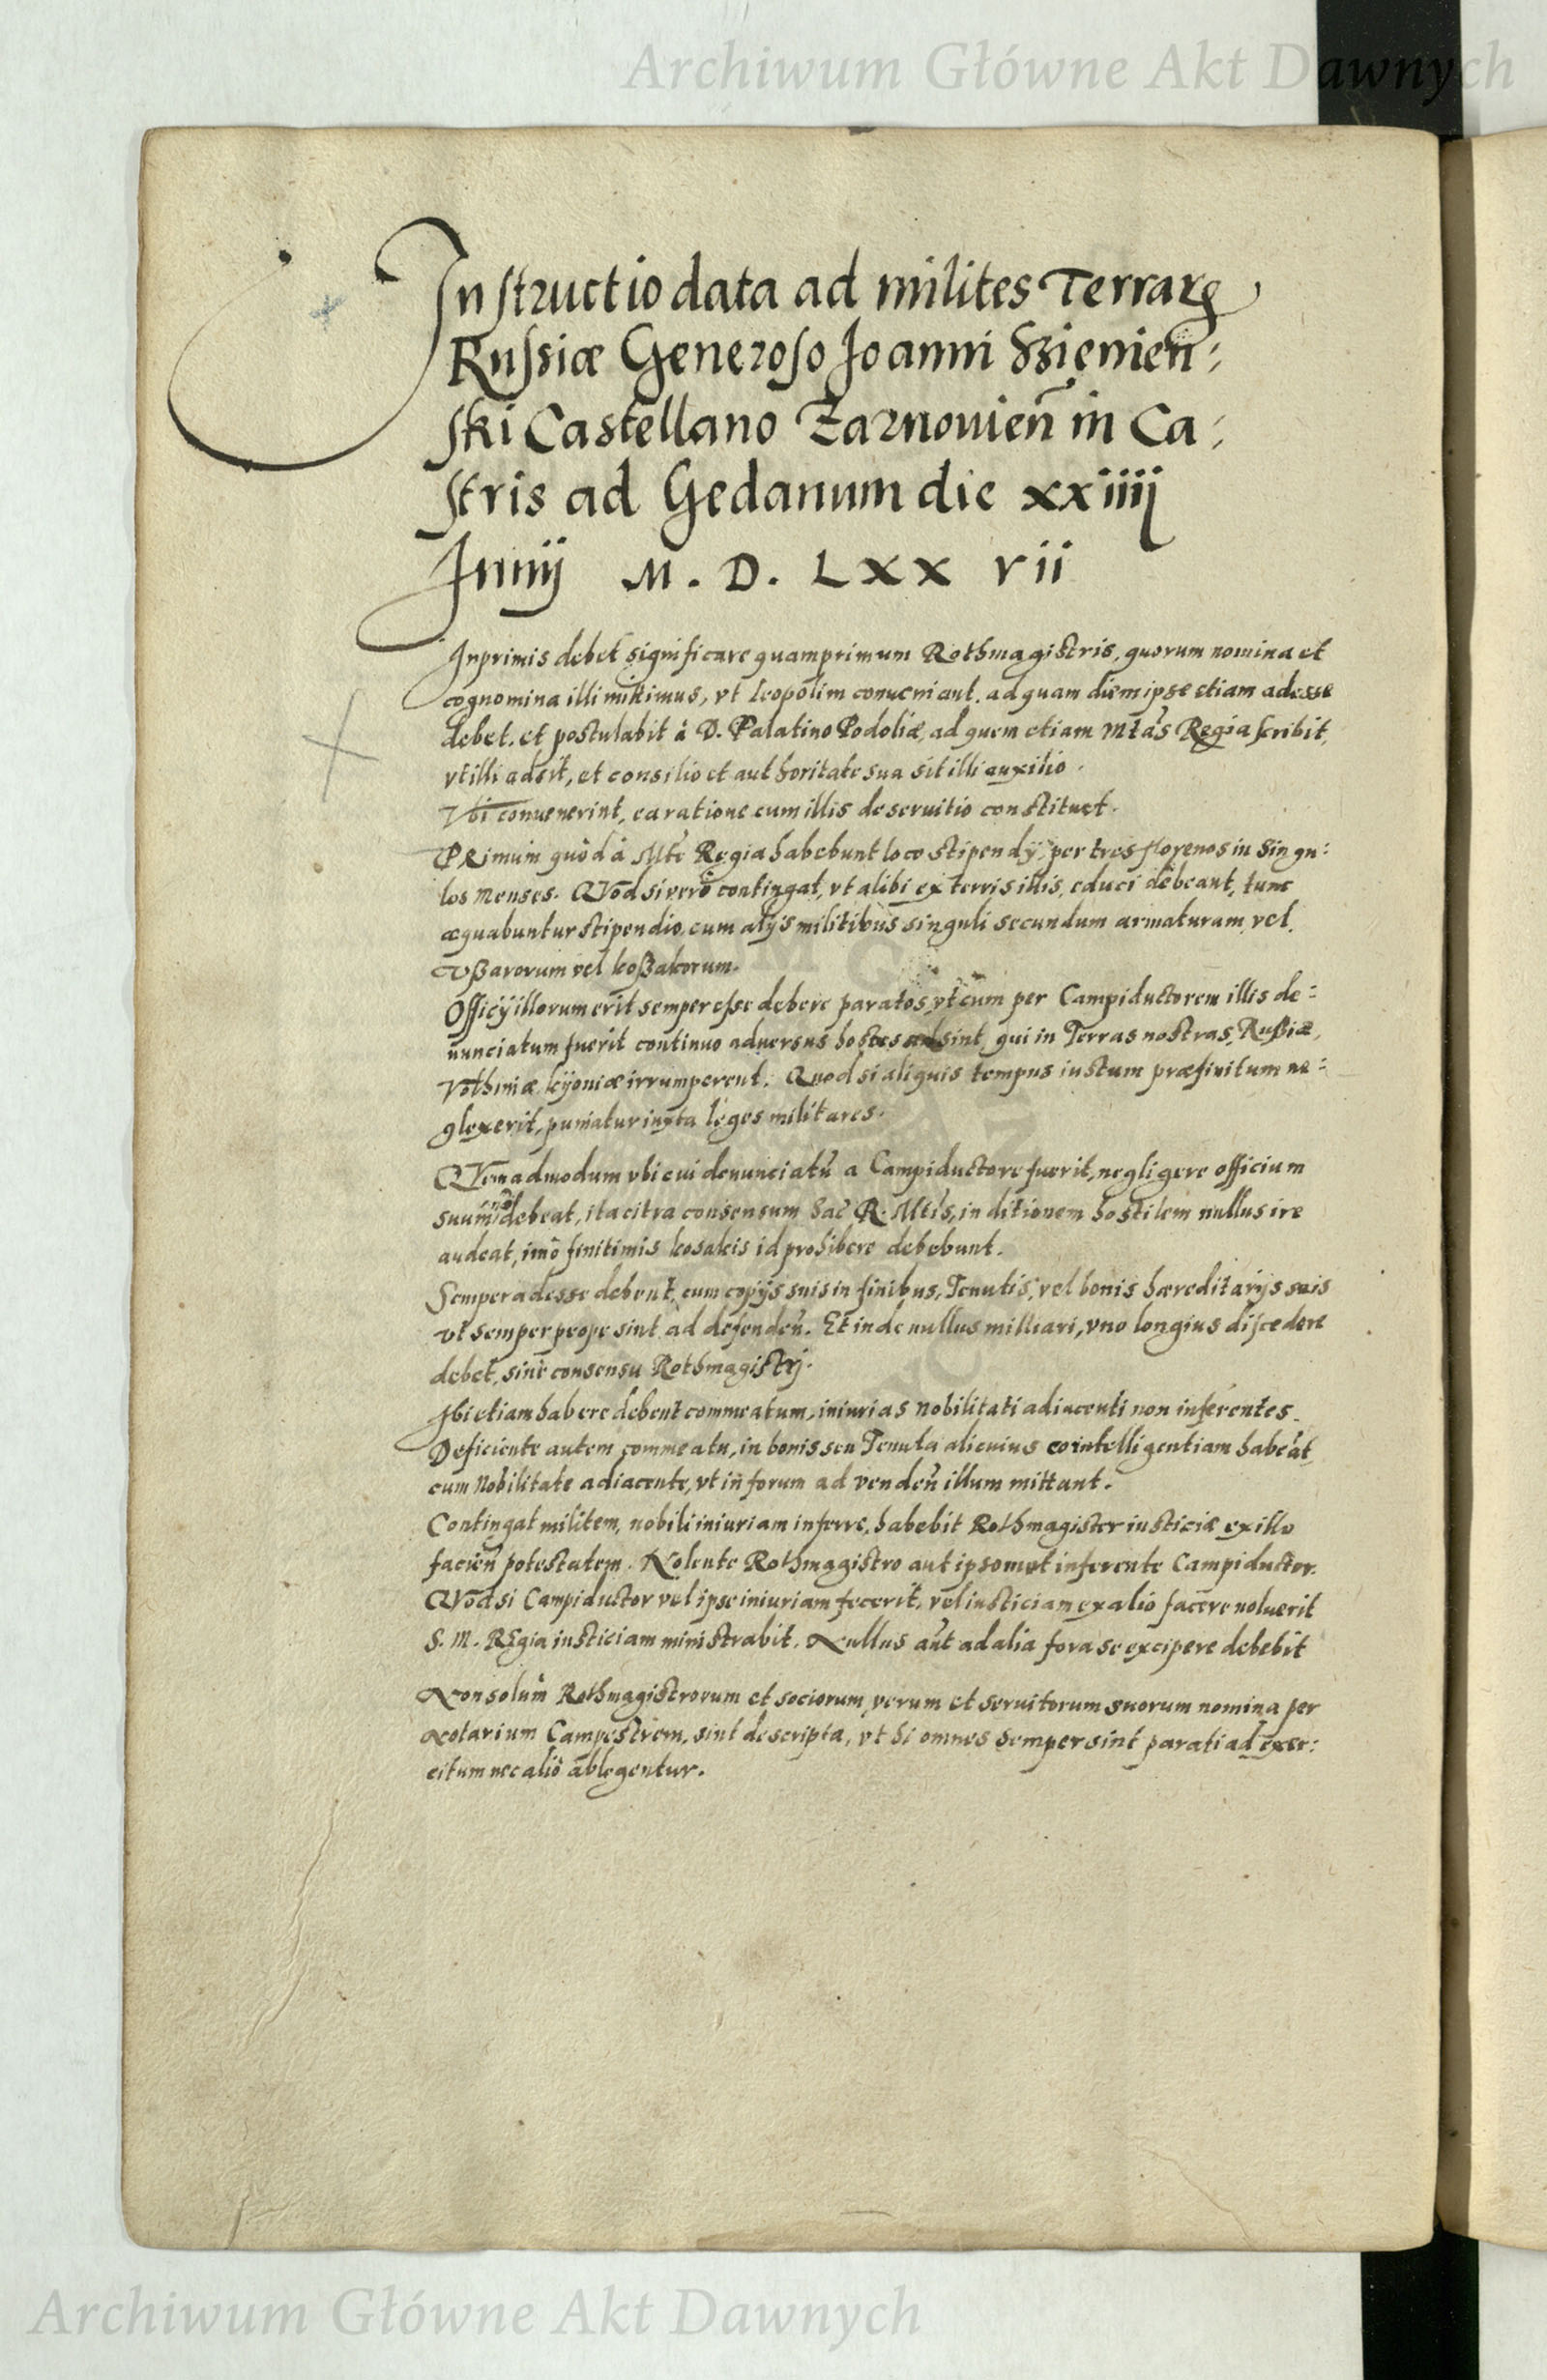 Archiwum Główne Akt Dawnych
Instructio data ad milites Terrarꝝ
Russiæ Generoso Joanni Sziemien:
ski Castellano Zarnouien̄ in Ca:
stris ad Gedanum die xxiiij
Junij M. D. LXX vii
Inprimis debet significare quamprimum Rothmagistris, quorum nomina et
cognomina illi mittimus, vt Leopolim conueniant. ad quam diem ipse etiam adesse
debet. et postulabit à D. Palatino Podoliæ, ad quem etiam Mtãs Regia scribit,
vt illi adsit, et consilio et authoritate sua sit illi auxilio.
Vbi conuenerint, ea ratione cum illis de seruitio constituet.
PRimum quòd à Mte Regia habebunt loco stipendÿ, per tres florenos in singu:
los Menses. QVòd si verò contingat, vt alibi ex terris illis, educi debeant, tunc
æquabuntur stipendio, cum alÿs militibus singuli secundum armaturam, vel
Vßarorum vel koßakorum.
Officÿ illorum erit semper esse debere paratos, vt cum per Campiductorem illis de:
nunciatum fuerit continuo aduersus hostes adsint, qui in Terras nostras, Rußiæ,
Volhiniæ kÿoniæ irrumperent. Quod si aliquis tempus iustum præfinitum ne:
glexerit, puniatur iuxta lèges militares.
QVemadmodum vbi cui denunciatū a Campiductore fuerit, negligere officium
suum nõ debeat, ita citra consensum Sac̃ R. Mtĩs, in ditionem hostilem nullus ire
audeat, imò finitimis kosakis id prohibere debebunt.
Semper adesse debent, cum copÿs suis in finibus, Tenutis, vel bonis hæreditarÿs suis
vt semper prope sint ad defendeñ. Et inde nullus milliari, vno longius discedere
debet, sinè consensu Rothmagistrj.
Ibi etiam habere debent commeatum, iniurias Nobilitati adiacenti non inferentes.
Deficiente autem commeatu, in bonis seu Tenuta alicuius eo intelligentiam habeāt
cum Nobilitate adiacente, vt in forum ad vendeñ illum mittant.
Contingat militem, nobili iniuriam inferre, habebit Rothmagister iusticiæ ex illo
facieñ potestatem. Nolente Rothmagistro aut ipsomet inferente Campiductor.
QVòd si Campiductor vel ipse iniuriam fecerit, vel iusticiam ex alio facere noluerit
S. M. REgia iusticiam ministrabit. Nullus aũt ad alia fora se excipere debebit
Non solùm Rothmagistrorum et sociorum, verum et seruitorum suorum nomina per
Notarium Campestrem, sint descripta, vt hi omnes semper sint parati ad exer:
citum nec aliò ablegentur.
Archiwum Główne Akt Dawnych